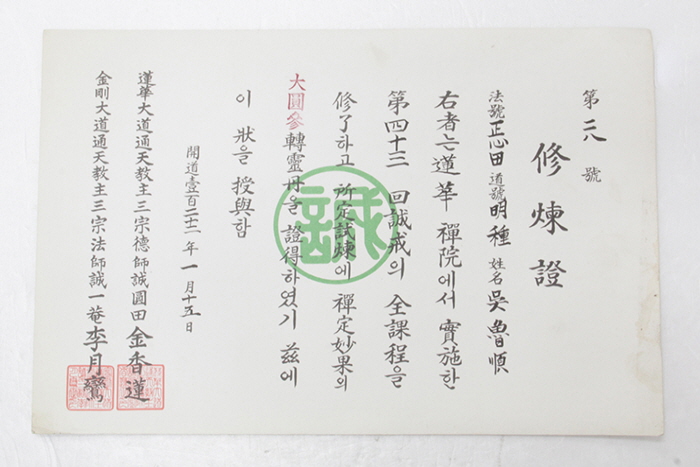 第二八號
修煉證
法號 正心田 道號 明種 姓名 吳魯順
右者는 蓮華 禪院에서 實施한
第四十三 回 誠戒의 全課程을
修了하고 所定試煉에 禪定妙果의
大圓參轉靈丹을 證得하였기 玆에
이 狀을 授與함
開道壹百二十二年 一月十五日
蓮華大道通天教主三宗德師誠圓田 金香蓮
金剛大道通天教主三宗法師誠一菴 李月鸞
誠